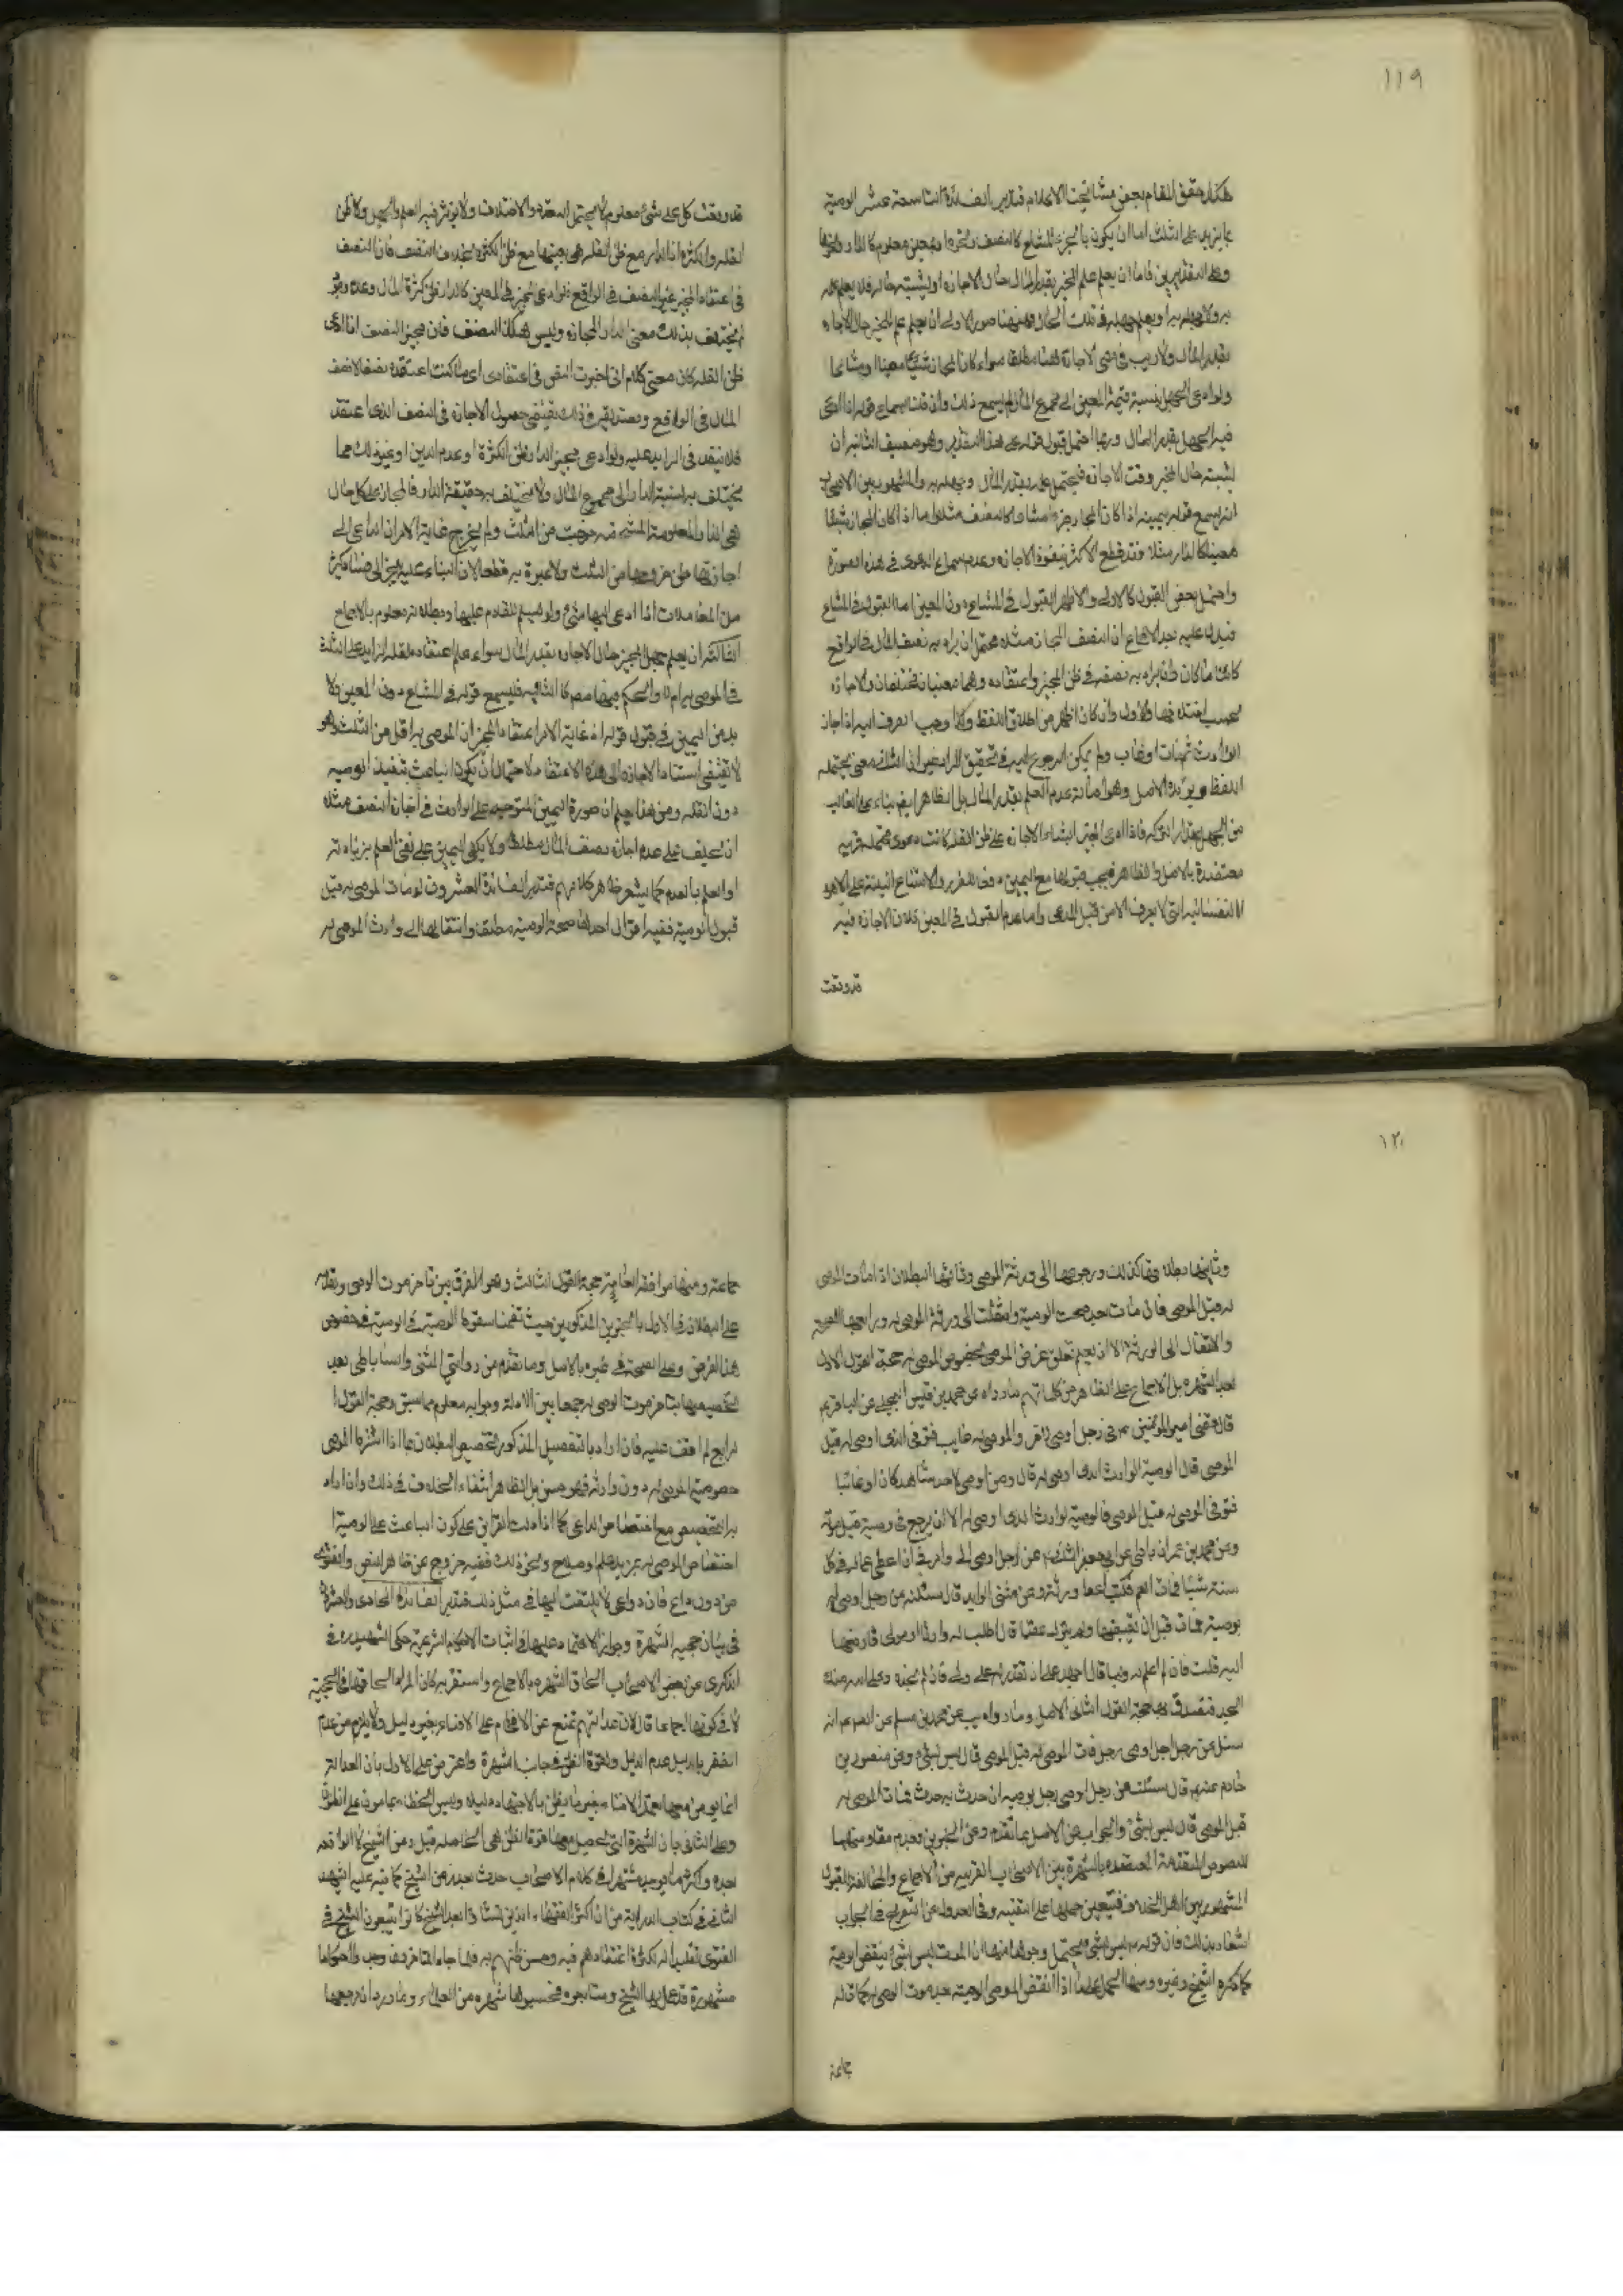 ١١٩
هكذا حقق المقام بعض مشايخنا الاعلام فتدبر الفائدة التاسعة عشر الوصية
بما يزيد على الثلث اما ان يكون بالجزء المشاع كالنصف ونحوه او بمعين معلوم كالدار ونحوها
وعلى التقديرين فاما ان يعلم علم المجيز بقدر المال حال الاجازة او يشتبه حاله فلا يعلم علمه
به ولا جهله به او يعلم جهله في تلك الحال فهنا صور الاولى ان يعلم علم المجيز حال الاجازة
بقدر المال ولا ريب في مضي الاجازة هنا مطلقا سواء كان المجاز شيئا معينا او مشاعا
ولو ادعى الجهل بنسبة قيمة المعين الى مجموع المال لم يسمع ذلك وان قلنا بسماع قوله اذا ادعى
فيه الجهل بقدر المال وربما احتمل قبول قوله على هذا التقدير وهو ضعيف الثانية ان
يشتبه حال المجيز وقت الاجازة فيحتمل علمه بقدر المال وجهله به والمشهور بين الاصحاب
انه يسمع قوله بيمينه اذا كان المجاز جزءا مشاعا كالنصف مثلا واما اذا كان المجاز شيئا
معينا كالدار مثلا فقد قطع الاكثر بنفوذ الاجازة وعدم سماع الدعوى في هذه الصورة
واحتمل بعض القبول كالاولى والاظهر القبول في المشاع دون المعين اما القبول في المشاع
فيدل عليه بعد الاجماع ان النصف المجاز مثلا يحتمل ان يراد به نصف المال في الواقع
كائنا ما كان وان يراد به نصفه في ظن المجيز واعتقاده وهما معنيان مختلفان والاجازة
بحسب اختلافهما والاول وان كان اظهر من اطلاق اللفظ ولذا وجب الصرف اليه اذا اجاز
الوارث ثم مات او غاب ولم يمكن الرجوع اليه في تحقيق المراد غير ان الثاني معنى يحتمله
اللفظ ويؤيده الاصل وهو اصالة عدم العلم بقدر المال بل الظاهر ايضا بناء على الغالب
من الجهل بمقدار التركة فاذا ادعى المجيز ابتناء الاجازة على ظن القلة كانت دعوى محتملة قريبة
معتضدة بالاصل والظاهر فيجب قبولها مع اليمين دفعا للضرر ولامتناع البينة على الامور
النفسانية التي لا تعرف الا من قبل المدعي واما عدم القبول في المعين فلان الاجازة فيه
قد وقعت

قد وقعت كل على شيء معلوم لا يحتمل التعدد والاختلاف ولا يؤثر فيه العلم والجهل ولا ظن
القلة والكثرة اذ الدار مع ظن القلة هي بعينها مع ظن الكثرة بخلاف النصف فان النصف
في اعتقاد المجيز غير النصف في الواقع فلو ادعى المجيز في المعين كالدار ظن كثرة المال وعدم دين
لم يختلف بذلك معنى الدار المجازة وليس هكذا النصف فان مجيز النصف اذا ادعى
ظن القلة كان معنى كلامه اني اجزت النصف في اعتقادي اي ما كنت اعتقده نصفا لا نصف
المال في الواقع وتصديقه في ذلك يقتضي حصول الاجازة في النصف الذي اعتقد
فلا تنفذ في الزايد عليه ولو ادعى مجيز الدار ظن الكثرة او عدم الدين او غير ذلك مما
يختلف به نسبة الدار الى مجموع المال ولا تختلف به حقيقة الدار فالمجاز على كل حال
هي الدار المعلومة المشخصة خرجت من الثلث ولم تخرج غاية الامر ان الداعي الى
اجازتها ظن خروجها من الثلث ولا عبرة به قطعا لان البناء عليه يجر الى فساد كثير
من المعاملات اذا ادعى فيها شيء ولو لم يقدم عليها وبطلانه معلوم بالاجماع
الثالثة ان يعلم جهل المجيز حال الاجازة بقدر المال سواء علم اعتقاده لقلة الزايد على الثلث
في الموصى به ام لا والحكم فيها معا كالثانية فيسمع قوله في المشاع دون المعين ولا
بد من اليمين في قبول قوله اذ غاية الامر اعتقاد المجيز ان الموصى به اقل من الثلث وهو
لا يقتضي استناد الاجازة الى هذا الاعتقاد لاحتمال ان يكون الباعث تنفيذ الوصية
دون القلة ومن هنا يعلم ان صورة اليمين المتوجه على الوارث في اجازة النصف مثلا
ان يحلف على عدم اجازة نصف المال مطلقا ولا يكفي اليمين على نفي العلم بزيادته
او العلم بالعدم كما يشعر ظاهر كلامهم فتدبر الفائدة العشرون لو مات الموصى له قبل
قبول الوصية ففيه اقوال احدها صحة الوصية مطلقا وانتقالها الى وارث الموصى له

١٢٠
وثانيها بطلانها كذلك ورجوعها الى ورثة الموصي وثالثها البطلان اذا مات الموصى
له قبل الموصي فان مات بعده صحت الوصية وانتقلت الى ورثة الموصى له ورابعها الصحة
والانتقال الى الورثة الا ان يعلم تعلق غرض الموصي بخصوص الموصى له حجة القول الاول
بعد الشهرة بل الاجماع على الظاهر من كلماتهم ما رواه عن محمد بن قيس البجلي عن الباقر ع
قال قضى امير المؤمنين ع في رجل اوصى لآخر والموصى له غايب فتوفي الذي اوصى له قبل
الموصي قال الوصية لوارث الذي اوصى له قال ومن اوصى لاحد شاهدا كان او غائبا
فتوفي الموصى له قبل الموصي فالوصية لوارث الذي اوصى له الا ان يرجع في وصيته قبل موته
وعن محمد بن عمران باطي عن ابي جعفر الثاني ع عن رجل اوصى الي وامرني ان اعطي عما له في كل
سنة شيئا فمات العم فكتب اعط ورثته وعن مثنى الوليد قال سئلته عن رجل اوصى له
بوصية فمات قبل ان يقبضها ولم يترك عقبا قال اطلب له وارثا او مولى فادفعها
اليه قلت فان لم اعلم له وليا قال اجهد على ان تقدر له على ولي فان لم تجده وعلم الله منك
الجهد فتصدق بها حجة القول الثاني الاصل وما رواه يب عن محمد بن مسلم عن الصادق ع انه
سئل عن رجل اوصى لرجل فمات الموصى له قبل الموصي قال ليس بشيء وعن منصور بن
حازم عنه ع قال سئلته عن رجل اوصى لرجل بوصية ان حدث به حدث فمات الموصى له
قبل الموصي قال ليس بشيء والجواب عن الاصل بما تقدم وعن الخبرين بعدم مقاومتهما
للنصوص المتقدمة المعتضدة بالشهرة بين الاصحاب القريبة من الاجماع والمخالفة للقول
المشهور بين اهل الخلاف فيتعين حملها على التقية وفي العدول عن التصريح في الجواب
اشعار بذلك فان قوله ع ليس بشيء يحتمل وجوها منها ان الموت ليس بشيء ينقض الوصية
كما ذكره الشيخ وغيره ومنها الحمل على ما اذا انقض الموصي الوصية بعد موت الموصى له كما قاله
جماعة

جماعة ومنها موافقة العامة حجة القول الثالث وهو الفرق بين تاخر موت الموصي وتقدمه
على البطلان في الاول بالخبرين المذكورين حيث تضمنا سقوط الوصية في الوصية في خصوص
هذا الفرض وعلى الصحة في غيره بالاصل وما تقدم من روايتي المثنى والساباطي بعد
تخصيصها بتاخر موت الموصى له جمعا بين الادلة وجوابه معلوم مما سبق وحجة القول
الرابع لم اقف عليه فان اراد بالتفصيل المذكور تخصيص البطلان بما اذا اشترط الموصي
خصوصية الموصى له دون وارثه فهو حسن بل الظاهر انتفاء الخلاف في ذلك وان اراد
به التخصيص مع اختصاص الداعي كما اذا دلت القراين على كون الباعث على الوصية
اختصاص الموصى له بمزيد علم او صلاح ونحو ذلك ففيه خروج عن ظاهر النص والفتوى
من دون داع فان دواعي لا يلتفت اليها في مثل ذلك فتدبر الفائدة الحادي والعشرون
في بيان حجية الشهرة وجواز الاعتماد عليها في اثبات الاحكام الشرعية حكى الشهيد ره في
الذكرى عن بعض الاصحاب الحاق الشهرة بالاجماع واستقر به فان المراد الحاقها في الحجية
لا في كونها اجماعا قال لان عدالتهم تمنع عن الاقدام على الافتاء بغير دليل ولا يلزم من عدم
الظفر بالدليل عدم الدليل ولقوة الظن في جانب الشهرة واعترض على الاول بان العدالة
انما يؤمن معها تعمد الافتاء بغير ما يظن بالاجتهاد دليلا وليس الخطاء بمامون على الظنون
وعلى الثاني بان الشهرة التي تحصل معها قوة الظن هي الحاصلة قبل زمن الشيخ لا الواقعة
بعده واكثر ما يوجد مشتهرا في كلام الاصحاب حدث بعد زمن الشيخ كما نبه عليه الشهيد
الثاني في كتاب الدراية من ان اكثر الفقهاء الذين نشئوا بعد الشيخ كانوا يتبعون الشيخ في
الفتوى تقليدا له لكثرة اعتقادهم فيه وحسن ظنهم به فلما جاء المتاخرون وجدوا احكاما
مشهورة قد عمل بها الشيخ ومتابعوه فحسبوها شهرة من العلماء وما دروا ان مرجعها